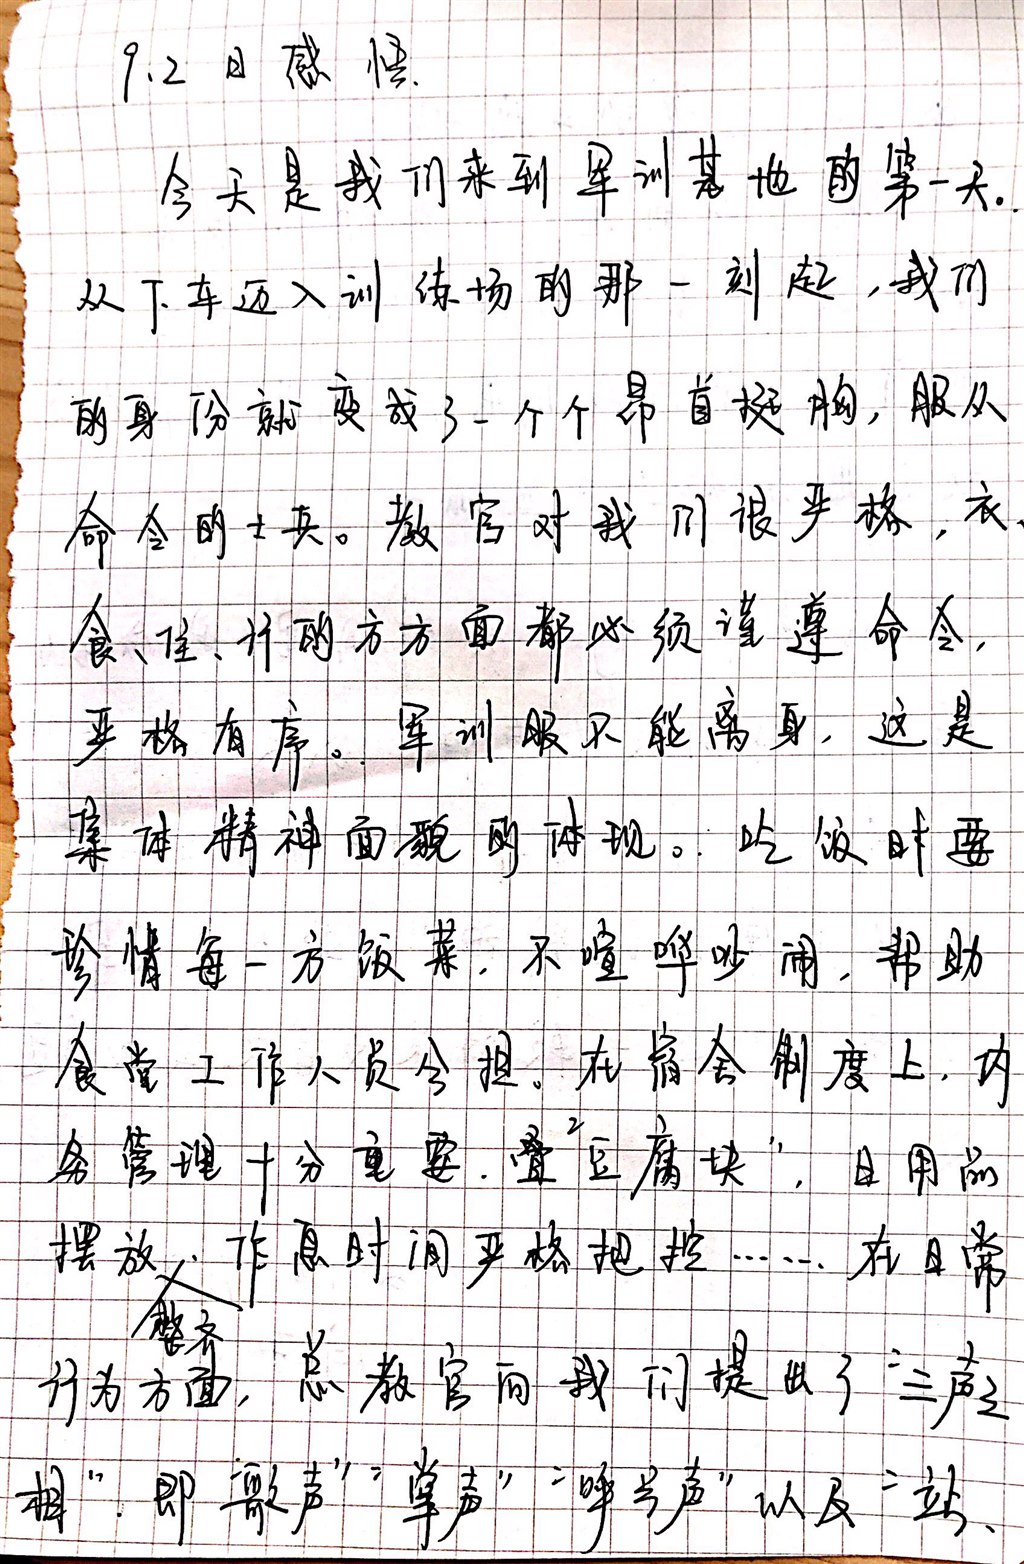 9.2日感悟.
今天是我们来到军训基地的第一天。
从下车迈入训练场的那一刻起，我们
的身份就变成了一个个昂首挺胸，服从
命令的士兵。教官对我们很严格，衣、
食、住、行的方方面都必须谨遵命令，
严格有序。军训服不能离身，这是
集体精神面貌的体现。吃饭时要
珍惜每一方饭菜，不喧哗吵闹，帮助
食堂工作人员分担。在宿舍制度上，内
务管理十分重要，叠“豆腐块”，日用品
摆放整齐、作息时间严格把控……在日常
行为方面，总教官向我们提出了“三声三
相”，即“歌声”“掌声”“呼号声”以及“站、